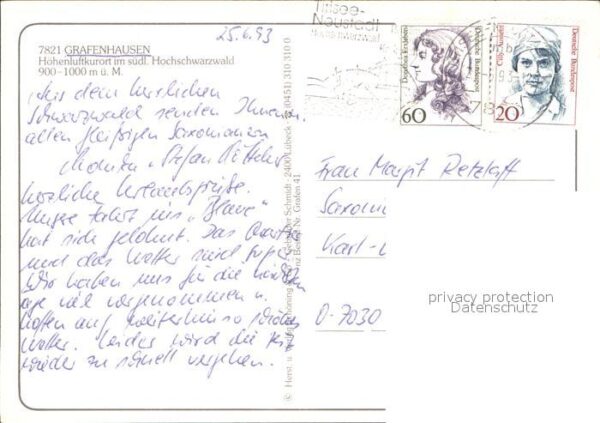 25.6.93
7821 GRAFENHAUSEN
Höhenluftkurort im südl. Hochschwarzwald
900-1000 m ü. M.
Aus dem herrlichen
Schwarzwald senden Ihnen
allen fleißigen Saxonianern
Monika u. Stefan
herzliche Urlaubsgrüße.
Unsere Fahrt ins „Blaue"
hat sich gelohnt. Das Quartier
und das Wetter sind super.
Wir haben uns für die
viel vorgenommen u.
hoffen auf weiterhin so schönes
Wetter. Leider wird die
wieder zu schnell vergehen.
Gebrüder Schmidt - 2400 Lübeck (0451) 310 310 0
Bestell Nr. Grafen 41
Titisee-
Neustadt
Hochschwarzwald
Dorothea Erxleben
Deutsche Bundespost
60
Cilly Aussem
Deutsche Bundespost
20
Frau Margit Retzlaff
Saxoni
Karl-
O-7030
privacy protection
Datenschutz